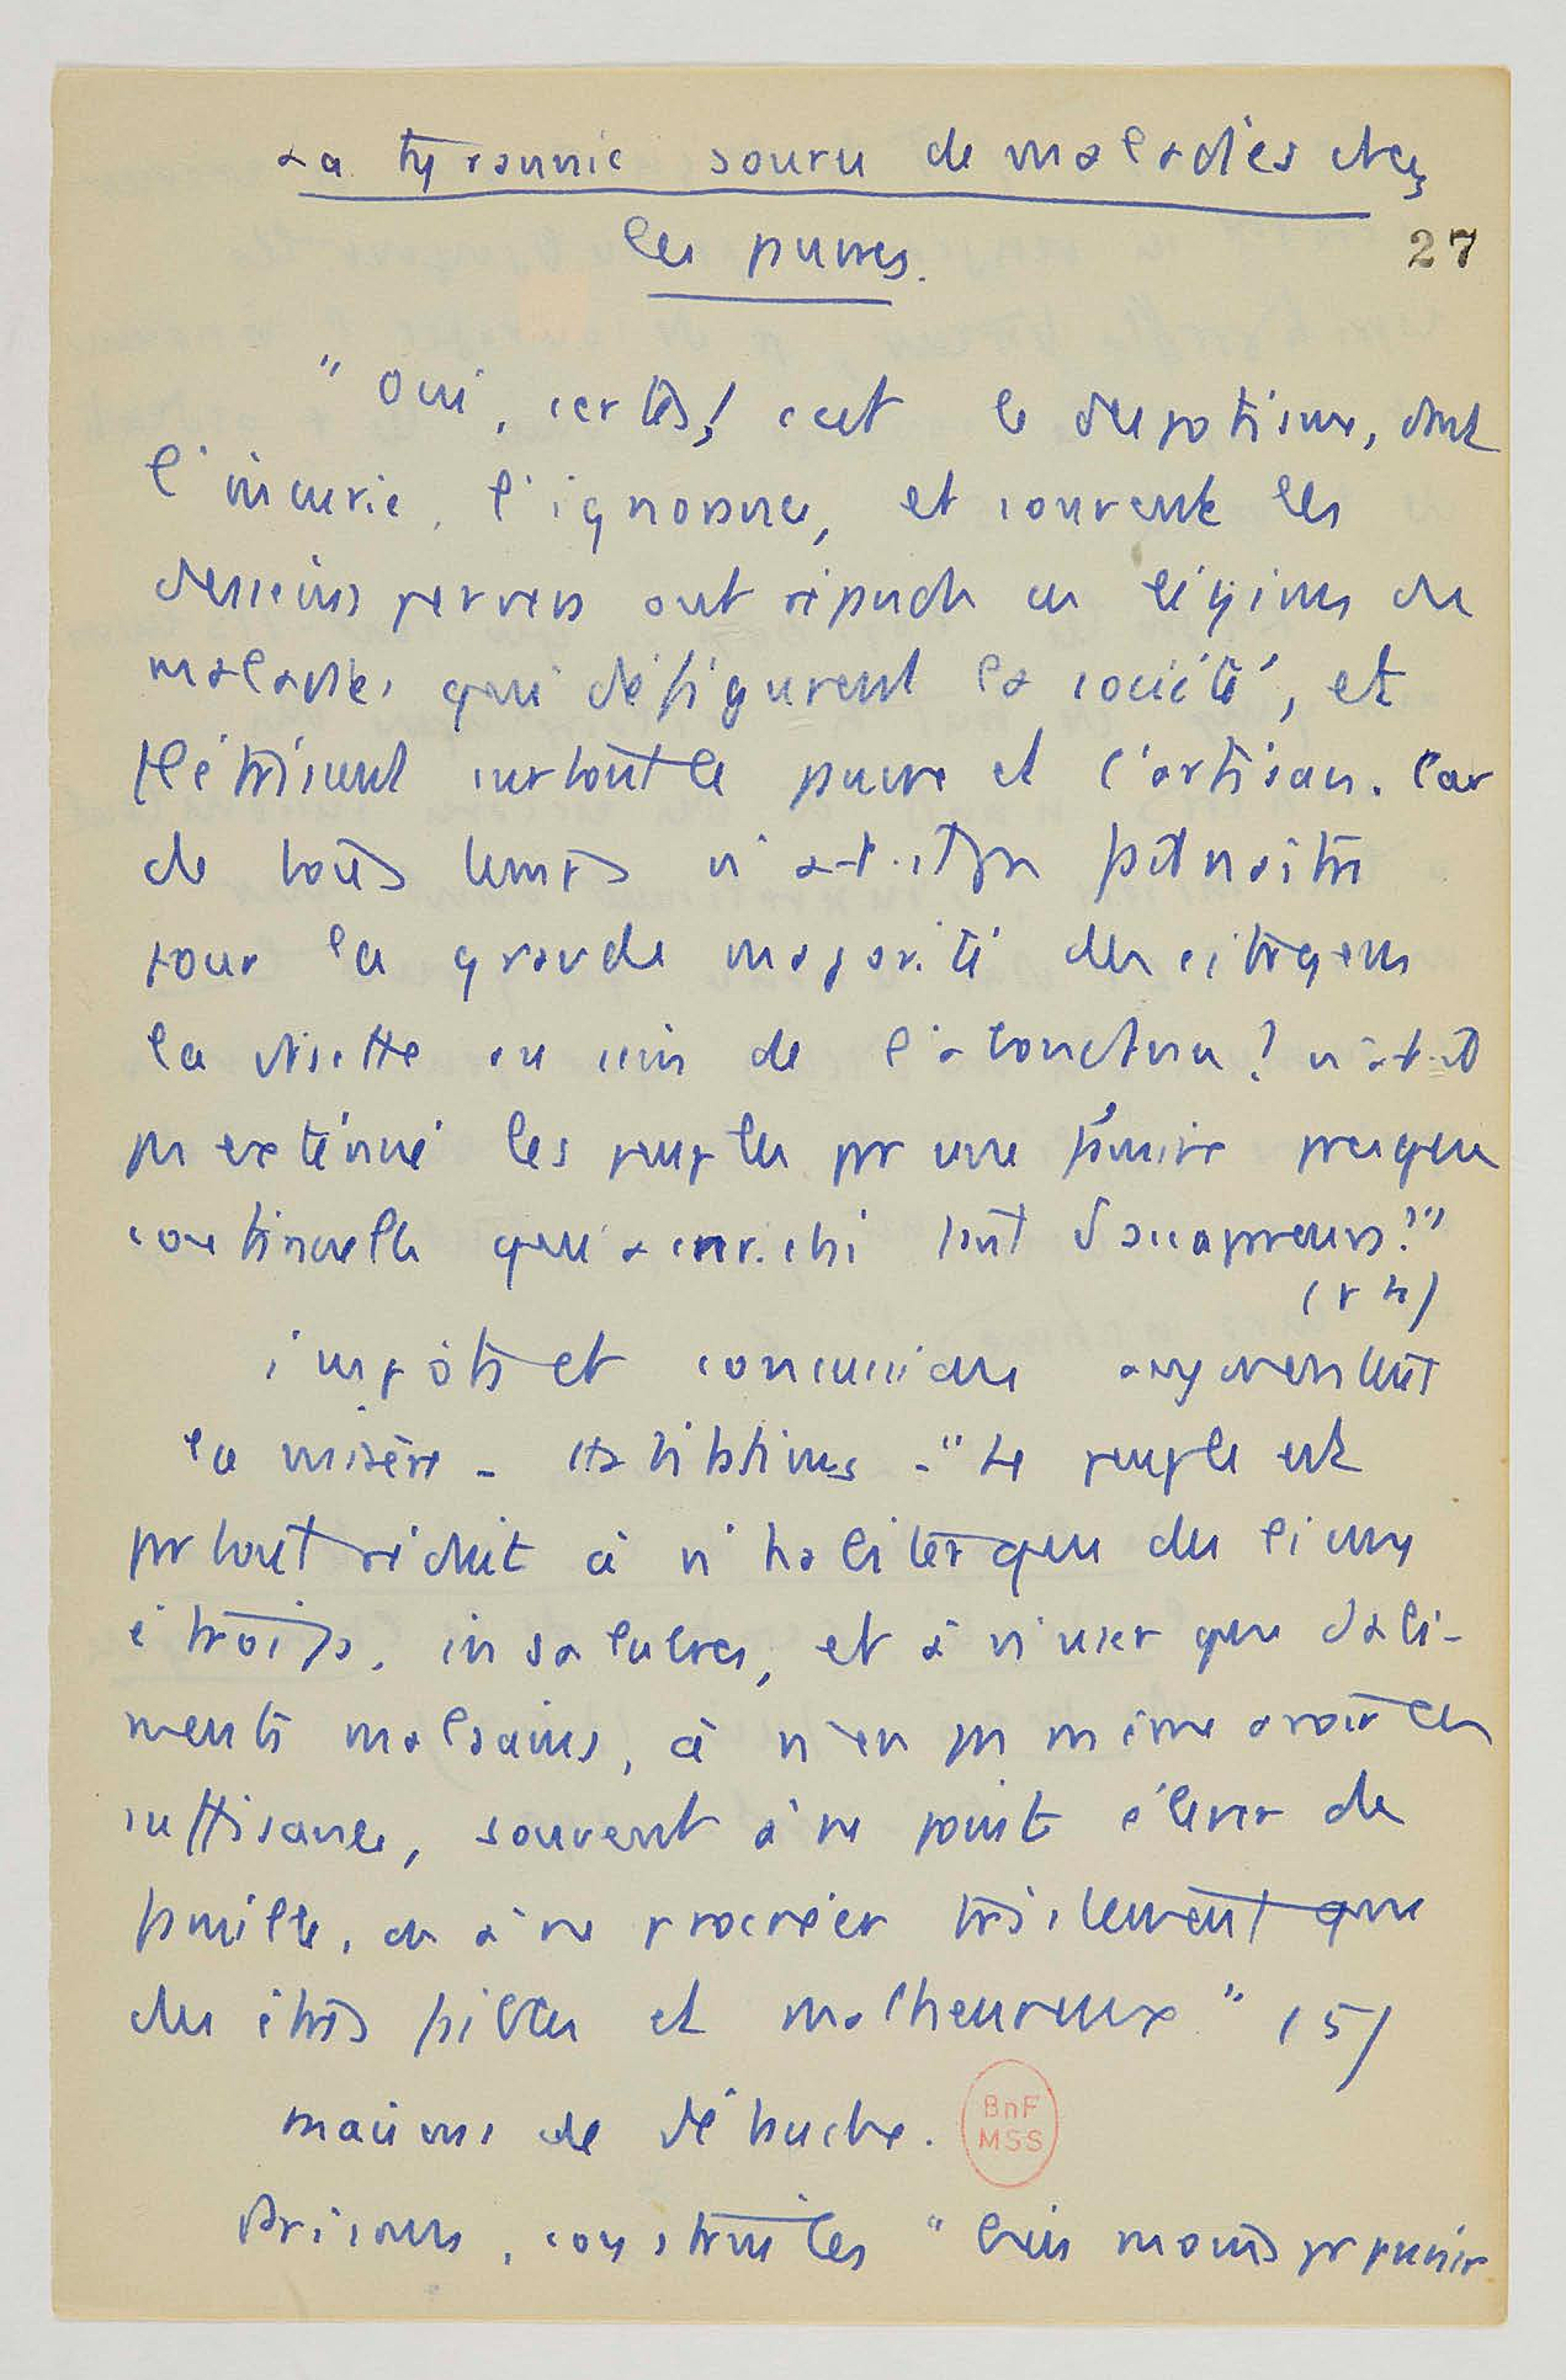 La tyrannie source de maladies chez
les pauvres.
27
" Oui, certes ! c'est le despotisme, dont
l'incurie, l'ignorance, et souvent les
desseins pervers ont répandu ces légions de
maladies qui défigurent la société, et
flétrissent surtout le pauvre et l'artisan. Car
de tous temps n'a-t-il pas fait naître
pour la grande majorité des citoyens
la disette au sein de l'abondance ? n'a-t-il
pas exténué les peuples par une famine presque
continuelle qui a enrichi tant d'accapareurs ? "
impôts et concussions augmentent
la misère - " Le peuple est
partout réduit à n'habiter que des lieux
étroits, insalubres, et à n'user que d'ali-
ments malsains, à n'en pas même avoir en
suffisance, souvent à ne point élever de
famille, ou à ne procréer tristement que
des êtres faibles et malheureux " (5)
maisons de débauche.
BnF
MSS
Prisons, construites " bien moins pr punir